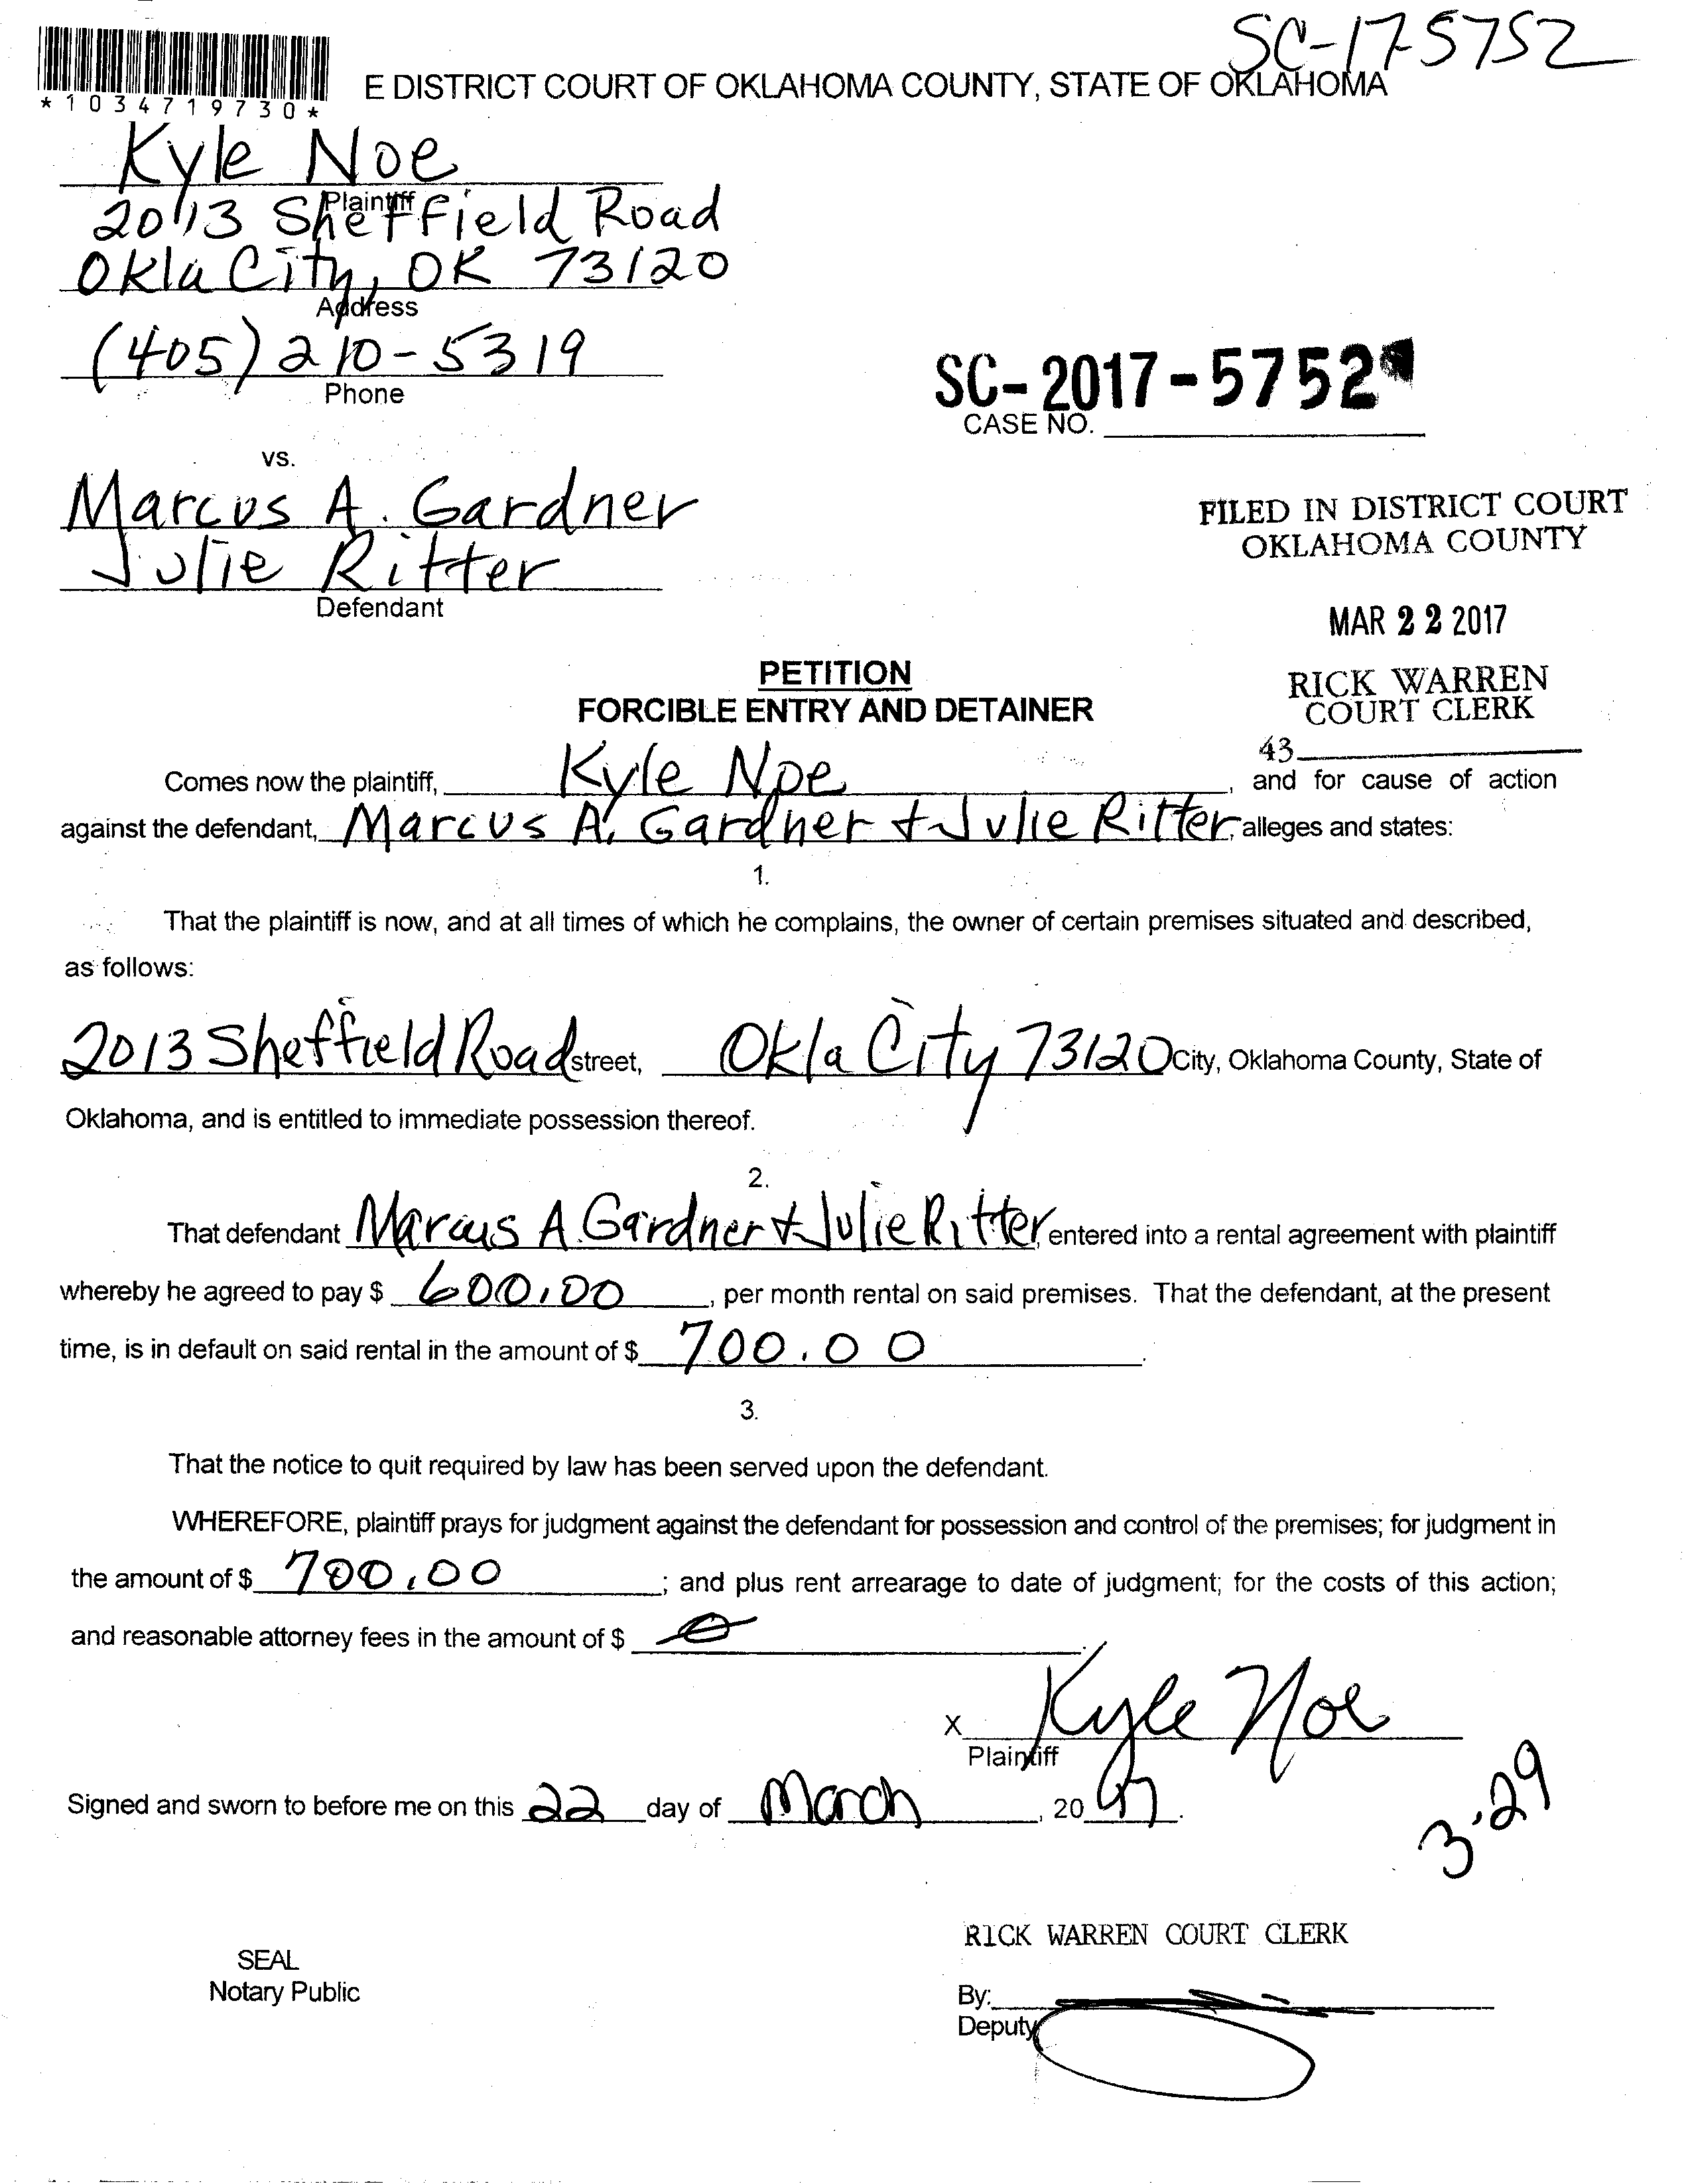 SC-17-5752
*1034719730*
E DISTRICT COURT OF OKLAHOMA COUNTY, STATE OF OKLAHOMA
Kyle Noe
Plaintiff
2013 Sheffield Road
Okla City, OK 73120
Address
(405) 210-5319
Phone
SC-2017-5752
CASE NO.
vs.
Marcus A. Gardner
Julie Ritter
Defendant
FILED IN DISTRICT COURT
OKLAHOMA COUNTY
MAR 22 2017
RICK WARREN
COURT CLERK
43
PETITION
FORCIBLE ENTRY AND DETAINER
Comes now the plaintiff, Kyle Noe, and for cause of action
against the defendant, Marcus A. Gardner + Julie Ritter, alleges and states:
1.
That the plaintiff is now, and at all times of which he complains, the owner of certain premises situated and described,
as follows:
2013 Sheffield Road street, Okla City 73120 City, Oklahoma County, State of
Oklahoma, and is entitled to immediate possession thereof.
2.
That defendant Marcus A. Gardner + Julie Ritter, entered into a rental agreement with plaintiff
whereby he agreed to pay $ 600.00, per month rental on said premises. That the defendant, at the present
time, is in default on said rental in the amount of $ 700.00.
3.
That the notice to quit required by law has been served upon the defendant.
WHEREFORE, plaintiff prays for judgment against the defendant for possession and control of the premises; for judgment in
the amount of $ 700.00; and plus rent arrearage to date of judgment; for the costs of this action;
and reasonable attorney fees in the amount of $ 0.
X Kyle Noe
Plaintiff
Signed and sworn to before me on this 22 day of March, 2017.
3-29
RICK WARREN COURT CLERK
SEAL
Notary Public
By:
Deputy